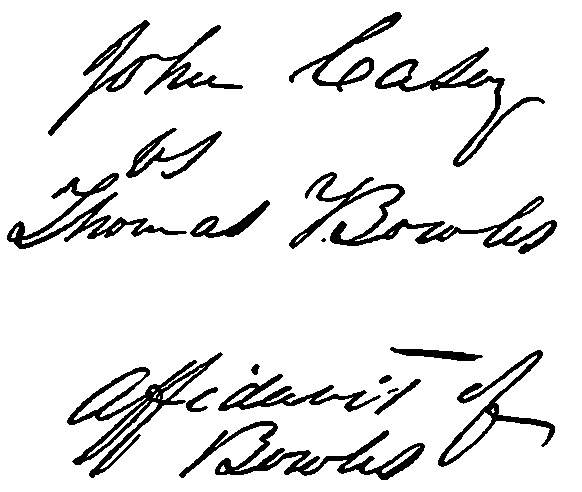 John Casey
vs
Thomas Y. Bowles
Affidavit of
Bowles